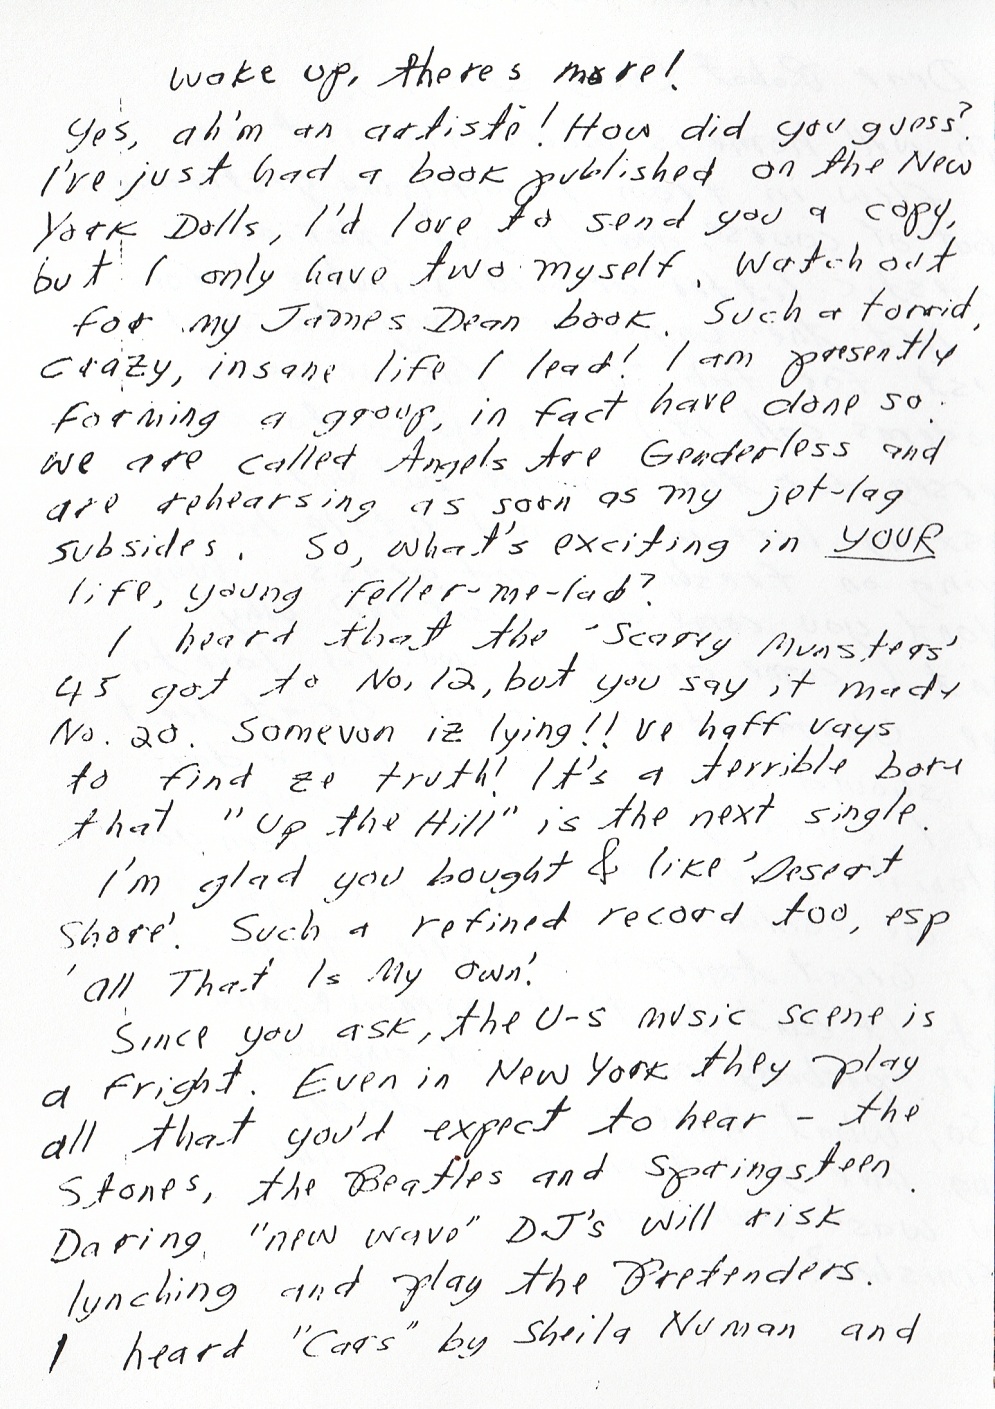 wake up, theres more!
Yes, ah'm an artiste! How did you guess?
I've just had a book published on the New
York Dolls, I'd love to send you a copy,
but I only have two myself. Watch out
for my James Dean book. Such a torrid,
crazy, insane life I lead! I am presently
forming a group, in fact have done so.
We are called Angels Are Genderless and
are rehearsing as soon as my jet-lag
subsides. So, what's exciting in YOUR
life, young feller-me-lad?
I heard that the 'Scarey Munsters'
45 got to No. 12, but you say it made
No. 20. Somevon iz lying!! Ve haff vays
to find ze truth! It's a terrible bore
that "Up the Hill" is the next single.
I'm glad you bought & like 'Desert
Shore'. Such a refined record too, esp
'All That Is My Own'.
Since you ask, the U-S music scene is
a fright. Even in New York they play
all that you'd expect to hear - the
Stones, the Beatles and Springsteen.
Daring, "new wave" DJ's will risk
lynching and play the Pretenders.
I heard "Cars" by Sheila Numan and